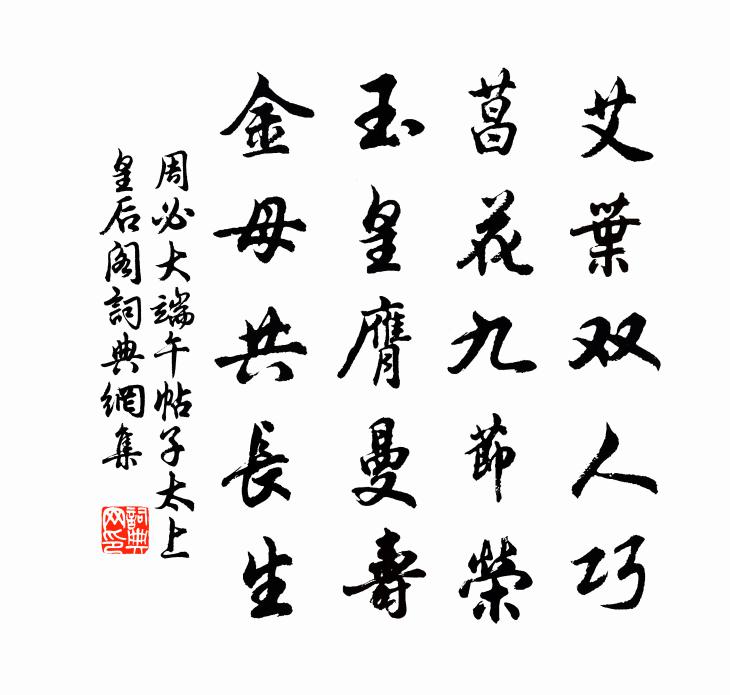 艾葉双人巧
菖花九節榮
玉皇膺曼壽
金母共長生
周必大端午帖子太上
皇后阁詞典網集
詞典网印